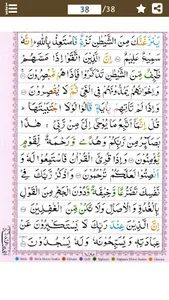 38 /38
يَنْزَغَنَّكَ مِنَ الشَّيْطٰنِ نَزْغٌ فَاسْتَعِذْ بِاللّٰهِ اِنَّهٗ
سَمِيْعٌ عَلِيْمٌ اِنَّ الَّذِيْنَ اتَّقَوْا اِذَا مَسَّهُمْ
طٰٓئِفٌ مِّنَ الشَّيْطٰنِ تَذَكَّرُوْا فَاِذَا هُمْ مُّبْصِرُوْنَ
وَاِخْوَانُهُمْ يَمُدُّوْنَهُمْ فِى الْغَىِّ ثُمَّ لَا يُقْصِرُوْنَ
وَاِذَا لَمْ تَاْتِهِمْ بِاٰيَةٍ قَالُوْا لَوْلَا اجْتَبَيْتَهَا
قُلْ اِنَّمَآ اَتَّبِعُ مَا يُوْحٰٓى اِلَىَّ مِنْ رَّبِّىْ هٰذَا
بَصَآئِرُ مِنْ رَّبِّكُمْ وَهُدًى وَّرَحْمَةٌ لِّقَوْمٍ
يُّؤْمِنُوْنَ وَاِذَا قُرِئَ الْقُرْاٰنُ فَاسْتَمِعُوْا لَهٗ
وَاَنْصِتُوْا لَعَلَّكُمْ تُرْحَمُوْنَ وَاذْكُرْ رَّبَّكَ فِىْ
نَفْسِكَ تَضَرُّعًا وَّخِيْفَةً وَّدُوْنَ الْجَهْرِ مِنَ الْقَوْلِ
بِالْغُدُوِّ وَالْاٰصَالِ وَلَا تَكُنْ مِّنَ الْغٰفِلِيْنَ
اِنَّ الَّذِيْنَ عِنْدَ رَبِّكَ لَا يَسْتَكْبِرُوْنَ عَنْ
عِبَادَتِهٖ وَيُسَبِّحُوْنَهٗ وَلَهٗ يَسْجُدُوْنَ